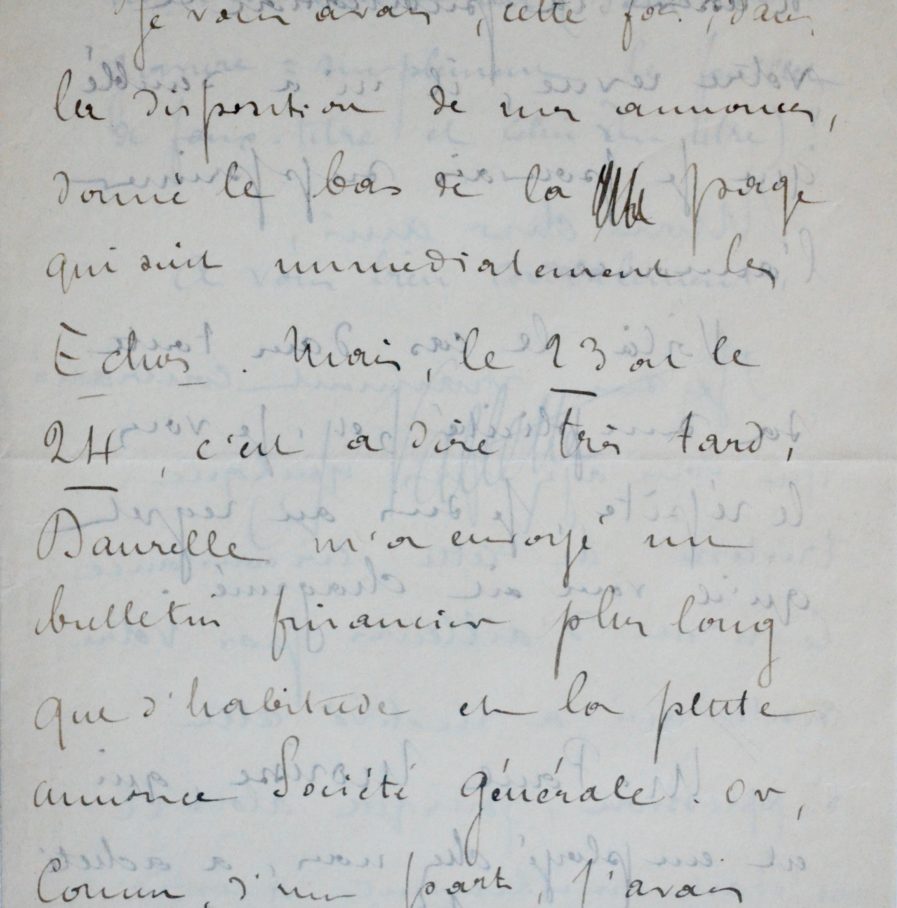 Je vous avais, cette fois, dans
la disposition de mes annonces,
donné le bas de la page
qui suit immediatement les
Echos. Mais, le 23 ou le
24, c'est a dire très tard,
Daurelle m'a envoyé un
bulletin financier plus long
que d'habitude et la petite
annonce Société Générale. Or,
Comme, d'une part, j'avais